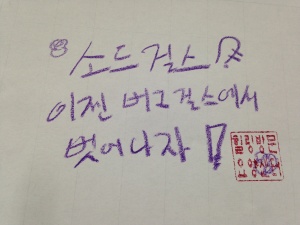 소드걸스!
이젠 버그걸스에서
벗어나자!